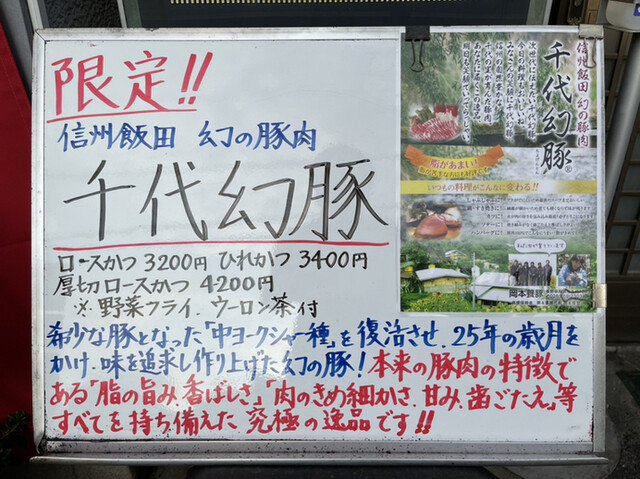 限定!!
信州飯田 幻の豚肉
千代幻豚
ロースかつ 3200円 ひれかつ 3400円
厚切ロースかつ 4200円
※野菜フライ、ウーロン茶付
希少な豚となった「中ヨークシャー種」を復活させ、25年の歳月を
かけ、味を追求し作り上げた幻の豚!本来の豚肉の特徴で
ある「脂の旨み、香ばしさ」「肉のきめ細かさ、甘み、歯ごたえ」等
すべてを持ち備えた 究極の逸品です!!
信州飯田 幻の豚肉
千代幻豚®
脂があまい!
いつもの料理がこんなに変わる!!
私たちが育てています
岡本養豚